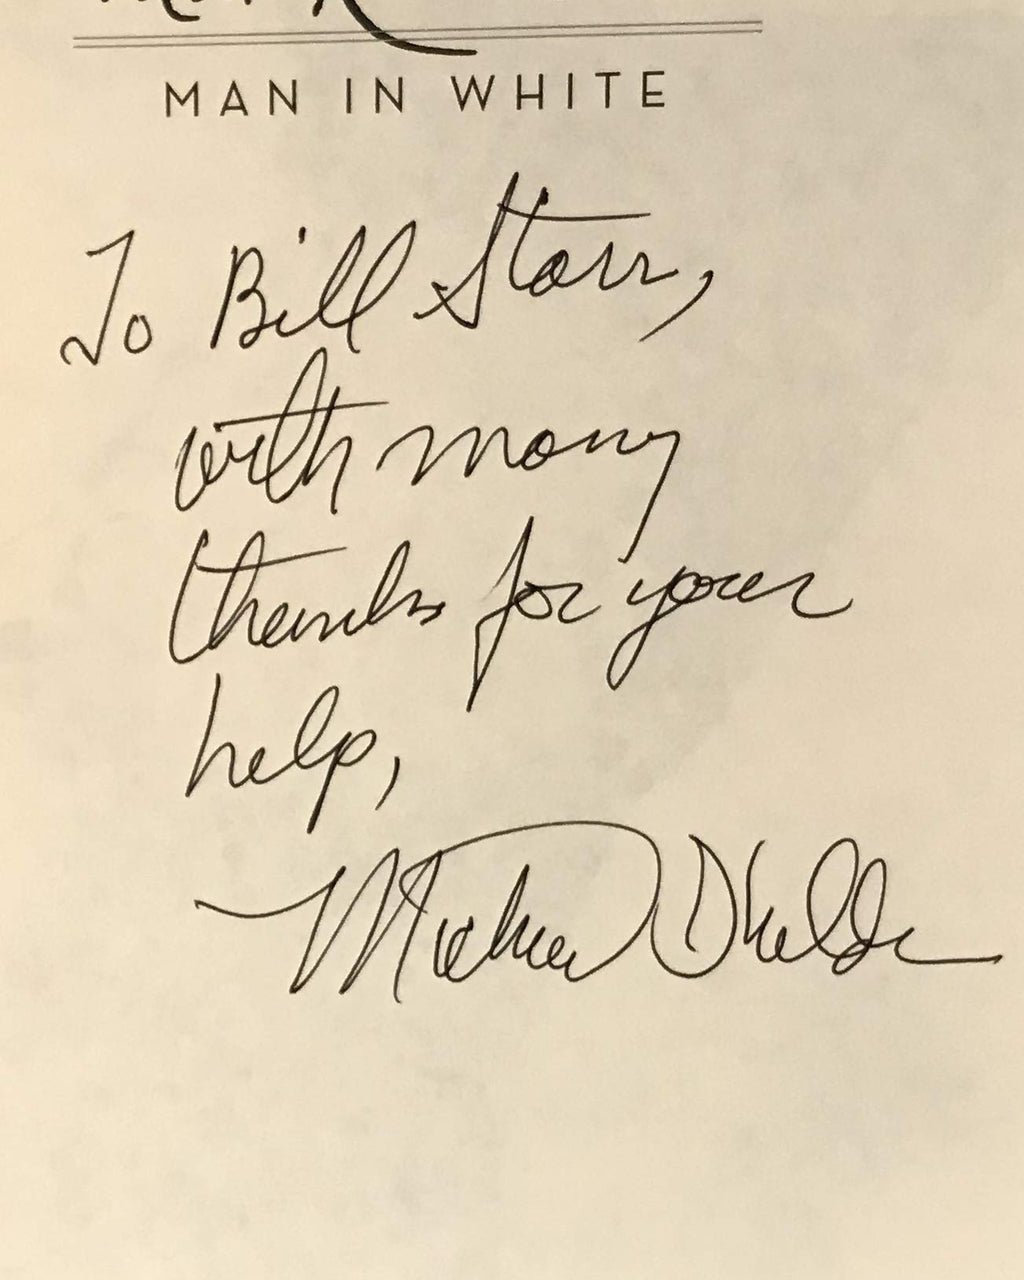 MAN IN WHITE
To Bill Starr,
with many
thanks for your
help,
Michael